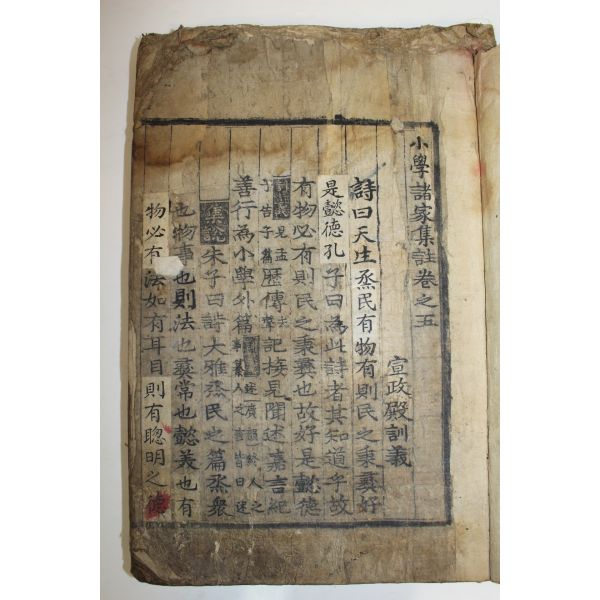 小學諸家集註卷之五
宣政殿訓義
詩曰天生烝民有物有則民之秉彝好
是懿德孔子曰為此詩者其知道乎故
有物必有則民之秉彝也故好是懿德
訓義見孟子告子篇歷傳去聲記接見聞述嘉言紀
善行為小學外篇
集說朱子曰詩大雅烝民之篇烝衆
也物事也則法也彝常也懿美也有
物必有法如有耳目則有聰明之德